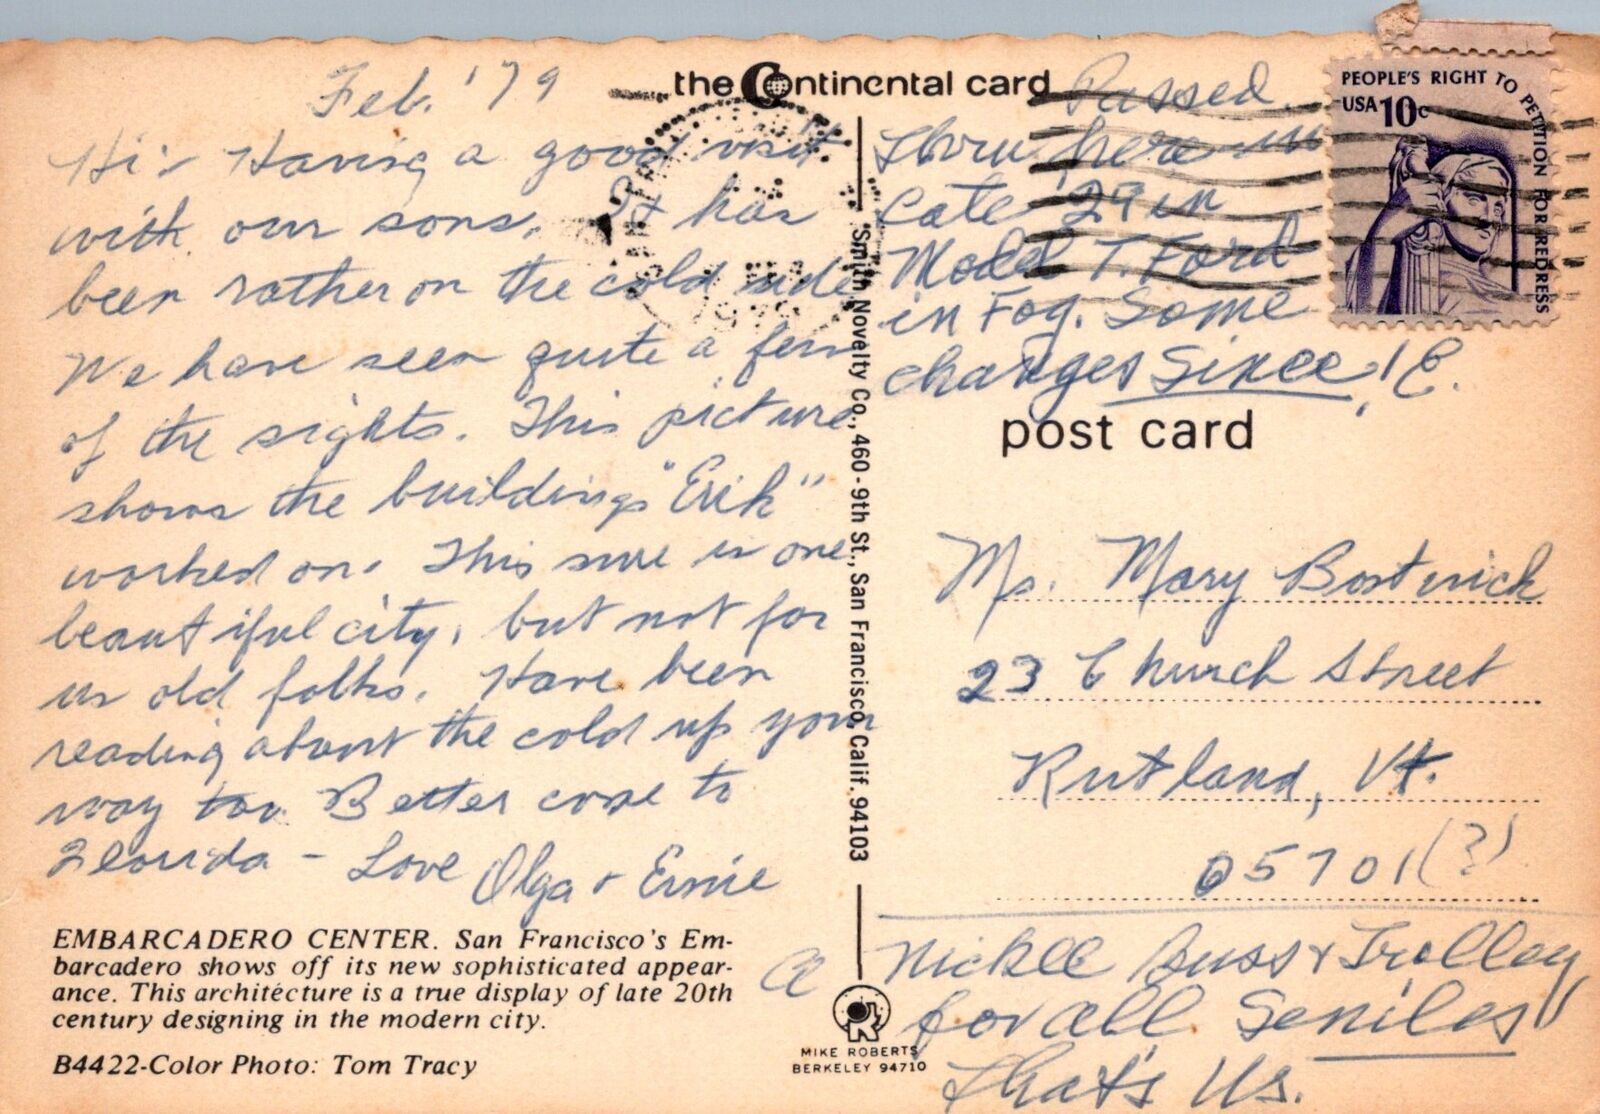 Feb. '79
Hi: Having a good visit
with our sons. It has
been rather on the cold side
We have seen quite a few
of the sights. This picture
shows the buildings "Erik"
worked on. This sure is one
beautiful city, but not for
us old folks. Have been
reading about the cold up your
way too. Better come to
Florida - Love Olga + Ernie
EMBARCADERO CENTER. San Francisco's Em-
barcadero shows off its new sophisticated appear-
ance. This architecture is a true display of late 20th
century designing in the modern city.
B4422-Color Photo: Tom Tracy
the Continental card
Smith Novelty Co., 460 - 9th St., San Francisco, Calif. 94103
MIKE ROBERTS
BERKELEY 94710
PEOPLE'S RIGHT TO PETITION FOR REDRESS
USA 10c
Passed
thru here in
Late 29 in
Model T. Ford
in Fog. Some
changes Since! E.
post card
Ms. Mary Bostwick
23 Church Street
Rutland, Vt.
05701(?)
a Nickle Buss & Trolley
for all Seniles
That's Us.